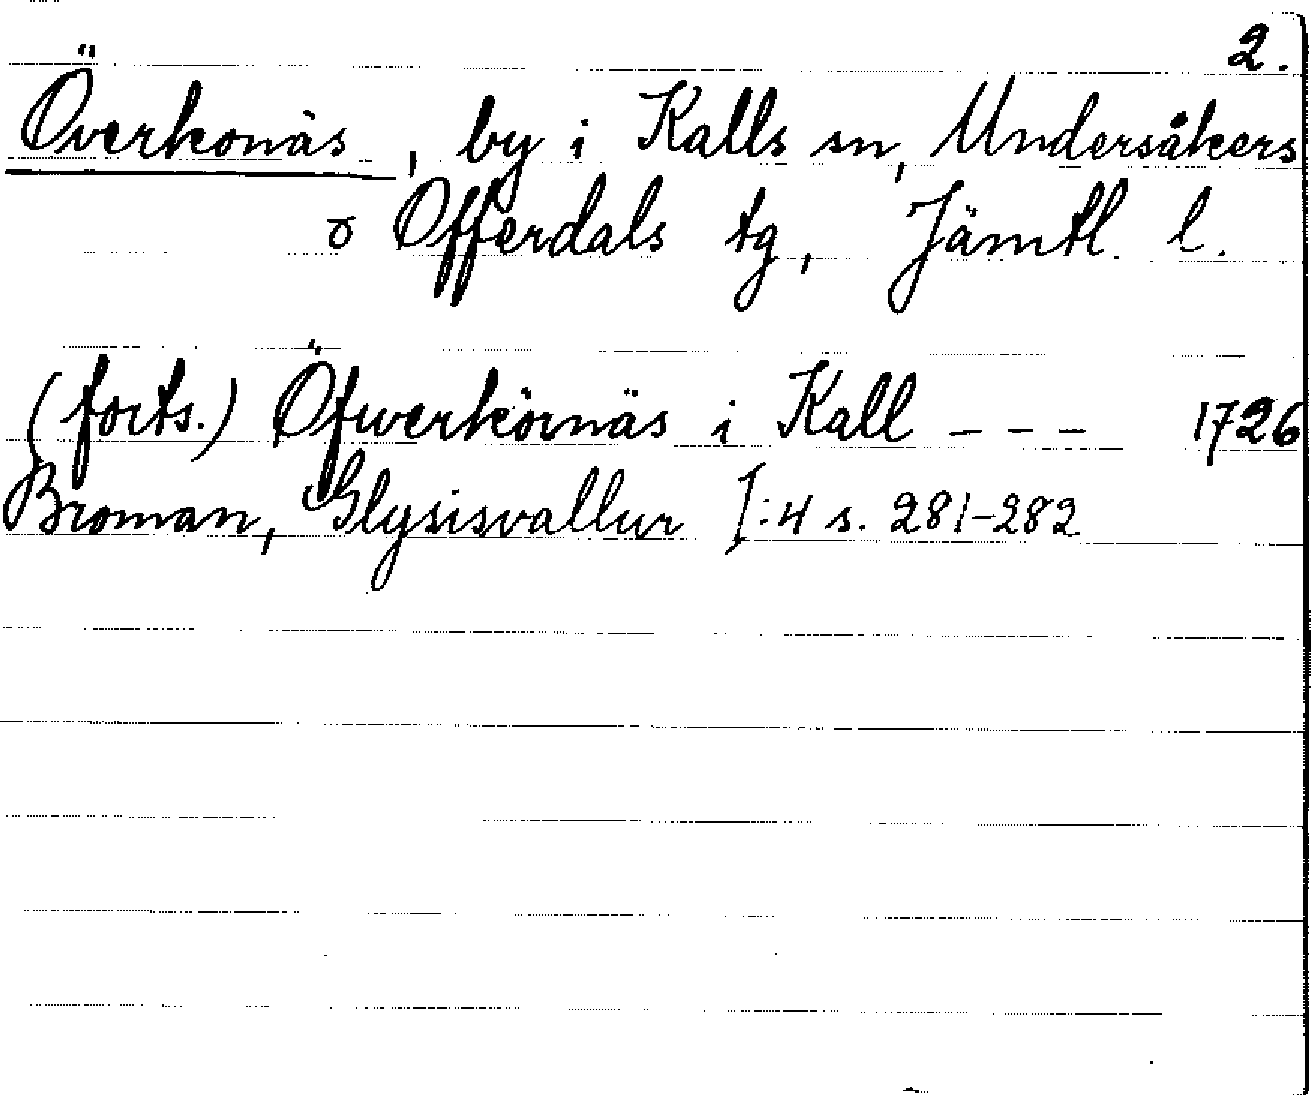 2.
Överkonäs, by i Kalls sn, Undersåkers
o Offerdals tg, Jämtl. l.
(forts.) Öfwerkörnäs i Kall - - - 1726
Broman, Glysisvallur I:4 s. 281-282